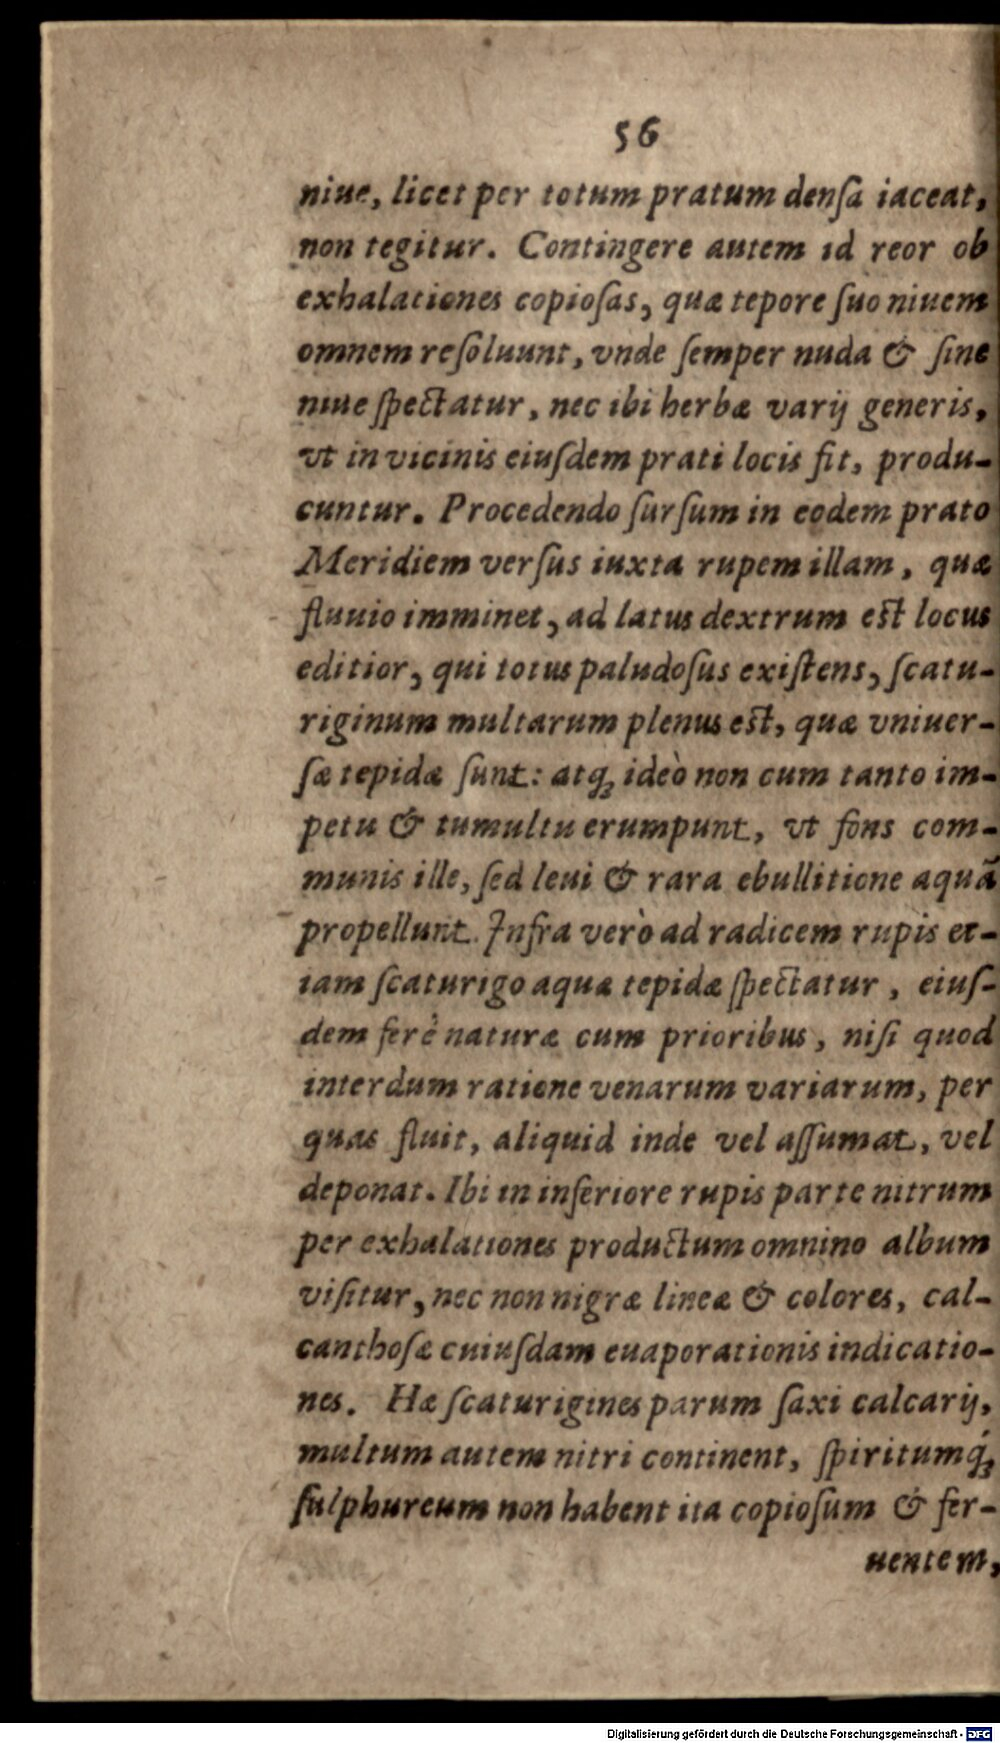 56
niue, licet per totum pratum denſa iaceat,
non tegitur. Contingere autem id reor ob
exhalationes copioſas, quæ tepore ſuo niuem
omnem reſoluunt, vnde ſemper nuda & ſine
niue ſpectatur, nec ibi herbæ varij generis,
vt in vicinis eiuſdem prati locis fit, produ-
cuntur. Procedendo ſurſum in eodem prato
Meridiem verſus iuxta rupem illam, quæ
fluuio imminet, ad latus dextrum eſt locus
editior, qui totus paludoſus exiſtens, ſcatu-
riginum multarum plenus eſt, quæ vniuer-
ſæ tepidæ ſunt: atq; ideò non cum tanto im-
petu & tumultu erumpunt, vt fons com-
munis ille, ſed leui & rara ebullitione aquā
propellunt. Infra verò ad radicem rupis et-
iam ſcaturigo aquæ tepidæ ſpectatur, eiuſ-
dem ferè naturæ cum prioribus, niſi quod
interdum ratione venarum variarum, per
quas fluit, aliquid inde vel aſſumat, vel
deponat. Ibi in inferiore rupis parte nitrum
per exhalationes productum omnino album
viſitur, nec non nigræ lineæ & colores, cal-
canthoſæ cuiuſdam euaporationis indicatio-
nes. Hæ ſcaturigines parum ſaxi calcarij,
multum autem nitri continent, ſpiritumq́;
ſulphureum non habent ita copioſum & fer-
uentem,
Digitalisierung gefördert durch die Deutsche Forschungsgemeinschaft - DFG